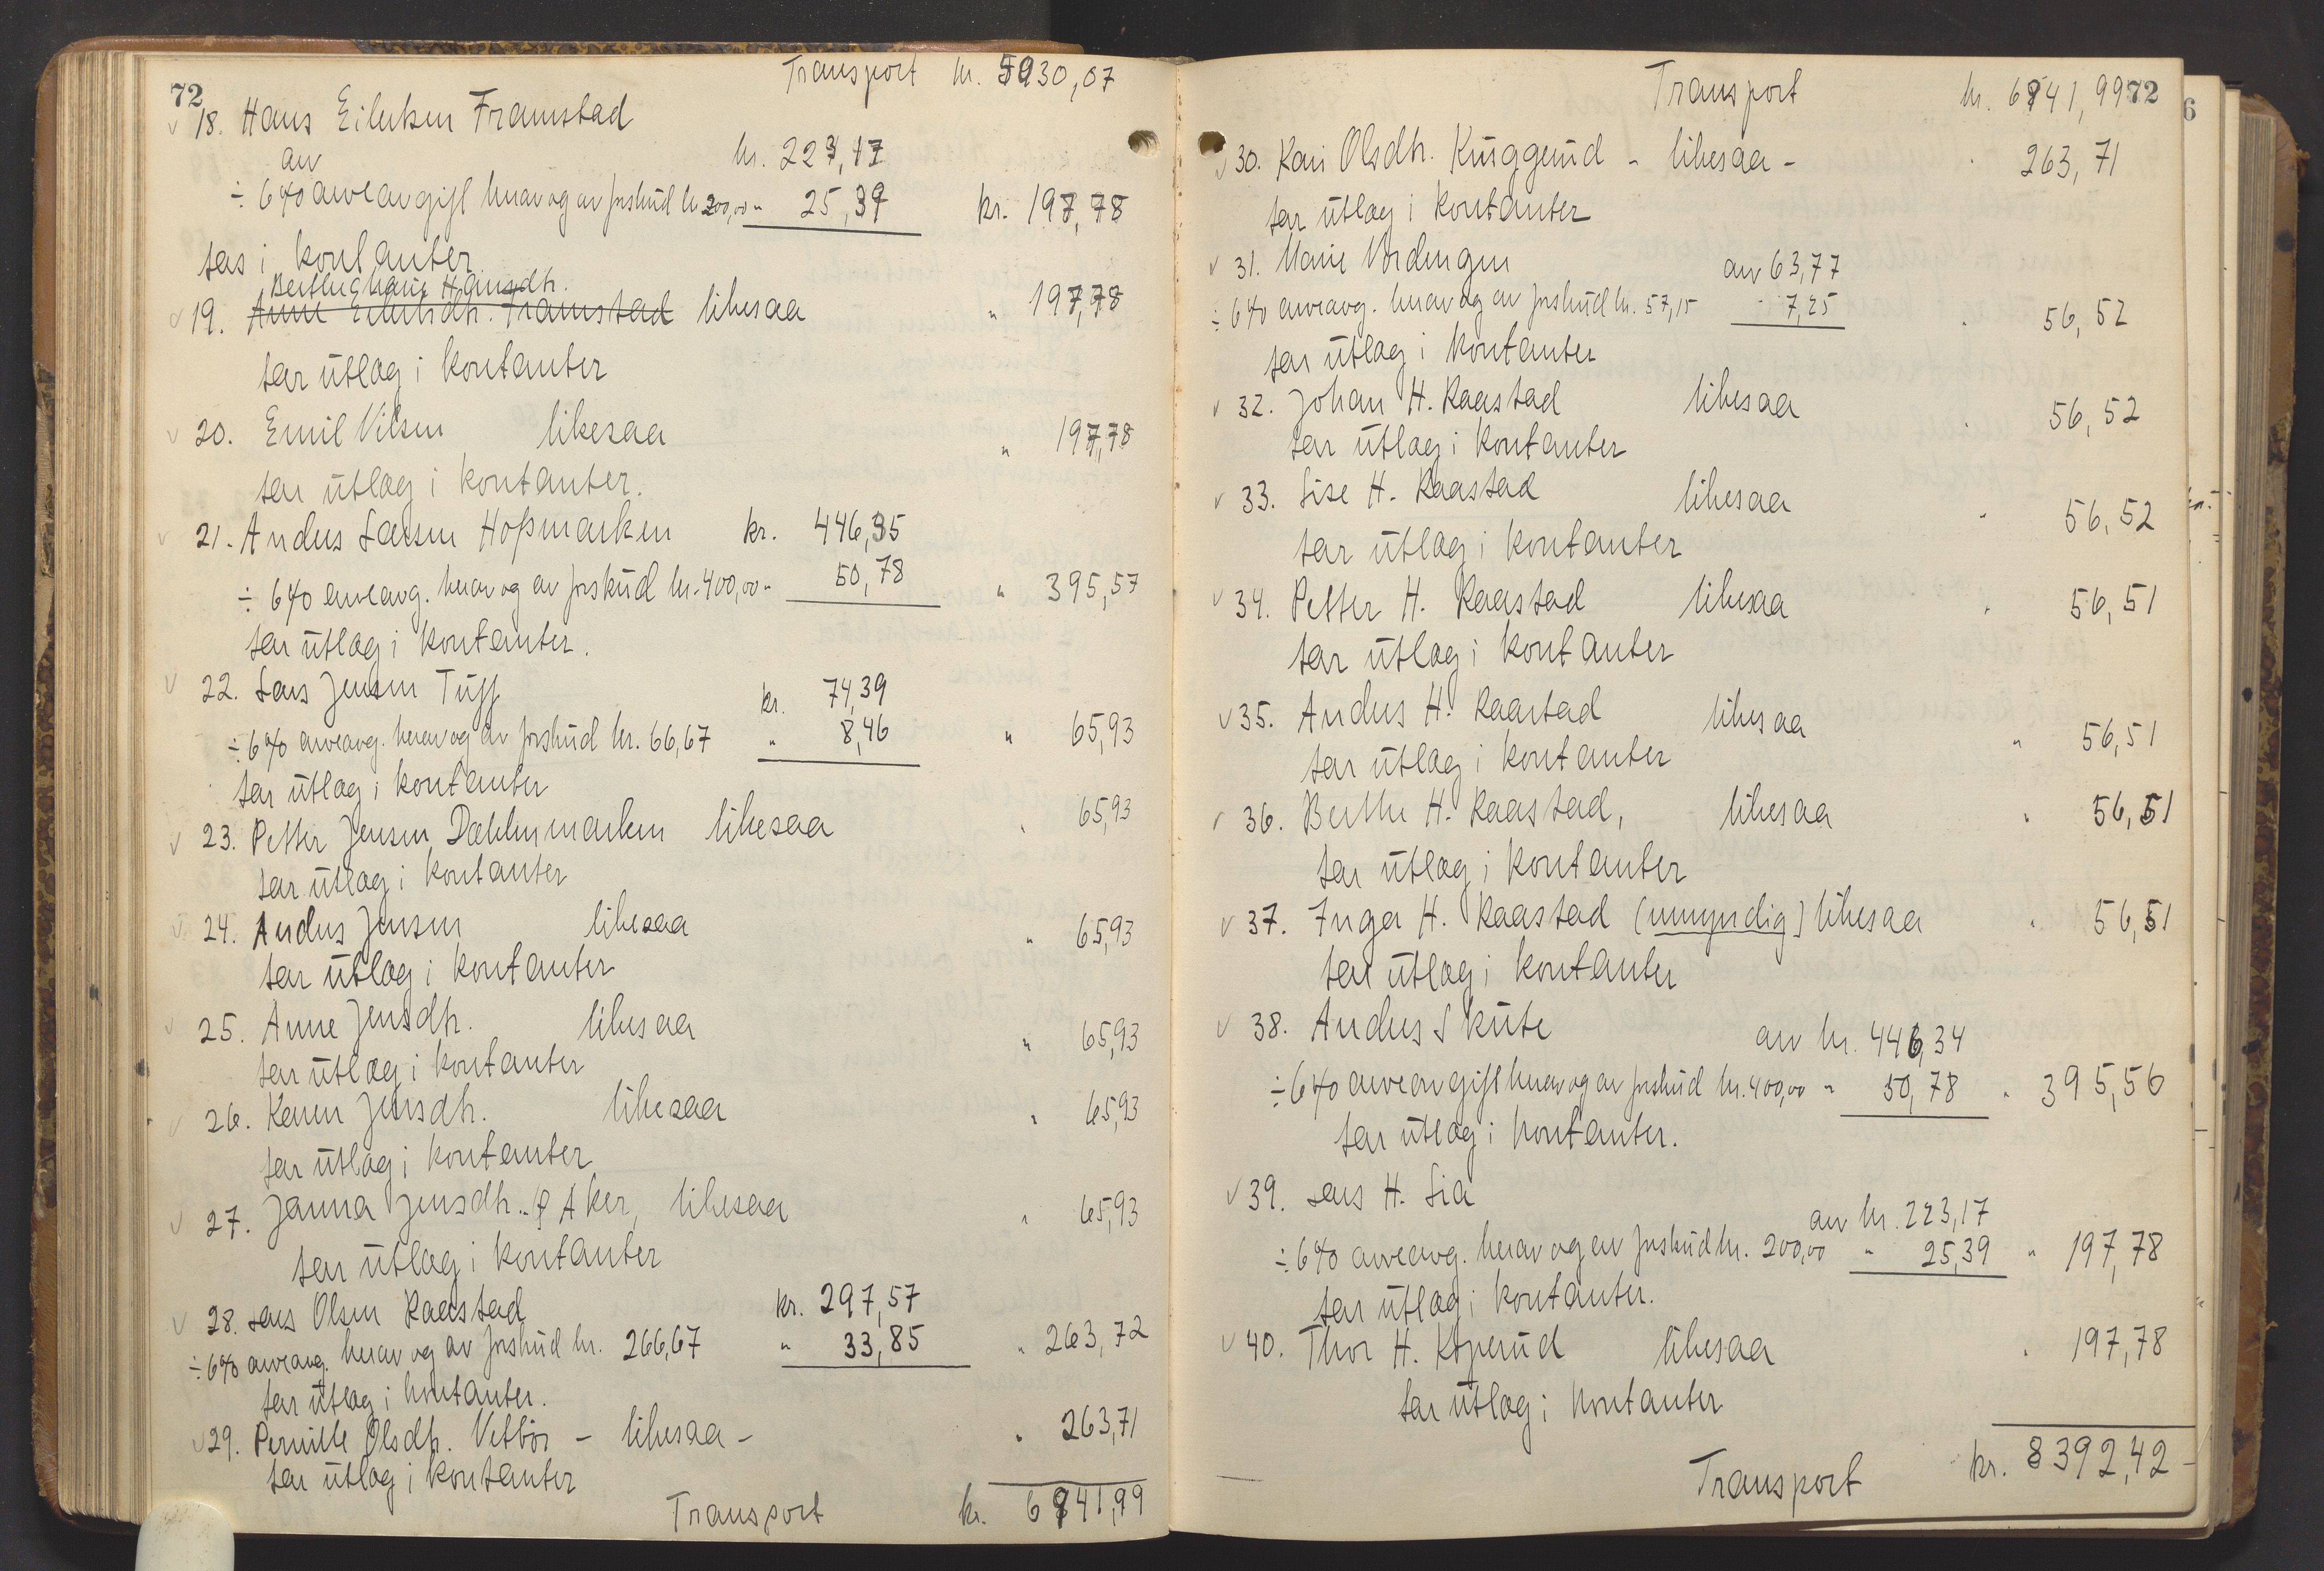 Transport kr. 5930,07
72
18. Hans Eilertsen Framstad
av kr. 223,17
÷ 6% arveavgift herav og av forskud kr 200,00 „ 25,39 kr. 197,78
tas i kontanter
Berthe Marie Hansdtr.
19. Anne Eilertsdtr. Framstad likesaa „ 197,78
tar utlæg i kontanter
20. Emil Nilsen likesaa „ 197,78
tar utlæg i kontanter.
21. Anders Larsen Hofsmarken kr. 446,35
÷ 6% arveavg. herav og av forskud kr. 400,00 „ 50,78 „ 395,57
tar utlæg i kontanter.
22. Lars Jensen Tuff kr. 74,39
÷ 6% arveavg. herav og av forskud kr. 66,67 „ 8,46 „ 65,93
tar utlæg i kontanter
23. Petter Jensen Dæhlenmarken likesaa „ 65,93
tar utlæg i kontanter
24. Anders Jensen likesaa „ 65,93
tar utlæg i kontanter
25. Anne Jensdtr. likesaa „ 65,93
tar utlæg i kontanter
26. Karen Jensdtr. likesaa „ 65,93
tar utlæg i kontanter
27. Janna Jensdtr. Aker, likesaa „ 65,93
tar utlæg i kontanter
28. Lars Olsen Raastad kr. 297,57
÷ 6% arveavg. herav og av forskud kr. 266,67 „ 33,85 „ 263,72
tar utlæg i kontanter.
29. Pernille Olsdtr. Vetbøs - likesaa - „ 263,71
tar utlæg i kontanter
Transport kr. 6941,99
Transport kr. 6941,99 72
30. Kari Olsdtr. Kruggerud - likesaa - „ 263,71
tar utlæg i kontanter
31. Marie Nordengen av 63,77
÷ 6% arveavg. herav og av forskud kr. 57,15 „ 7,25 „ 56,52
tar utlæg i kontanter
32. Johan H. Raastad likesaa „ 56,52
tar utlæg i kontanter
33. Lise H. Raastad likesaa „ 56,52
tar utlæg i kontanter
34. Petter H. Raastad likesaa „ 56,51
tar utlæg i kontanter
35. Anders H. Raastad likesaa „ 56,51
tar utlæg i kontanter
36. Berthe H. Raastad, likesaa „ 56,51
tar utlæg i kontanter
37. Inga H. Raastad (umyndig) likesaa „ 56,51
tar utlæg i kontanter
38. Anders Skute av kr. 446,34
÷ 6% arveavgift herav og av forskud kr. 400,00 „ 50,78 „ 395,56
tar utlæg i kontanter.
39. Lars H. Lia av kr. 223,17
÷ 6% arveavg. herav og av forskud kr. 200,00 „ 25,39 „ 197,78
tar utlæg i kontanter.
40. Thor H. Koperud likesaa „ 197,78
tar utlæg i kontanter
Transport kr. 8392,42